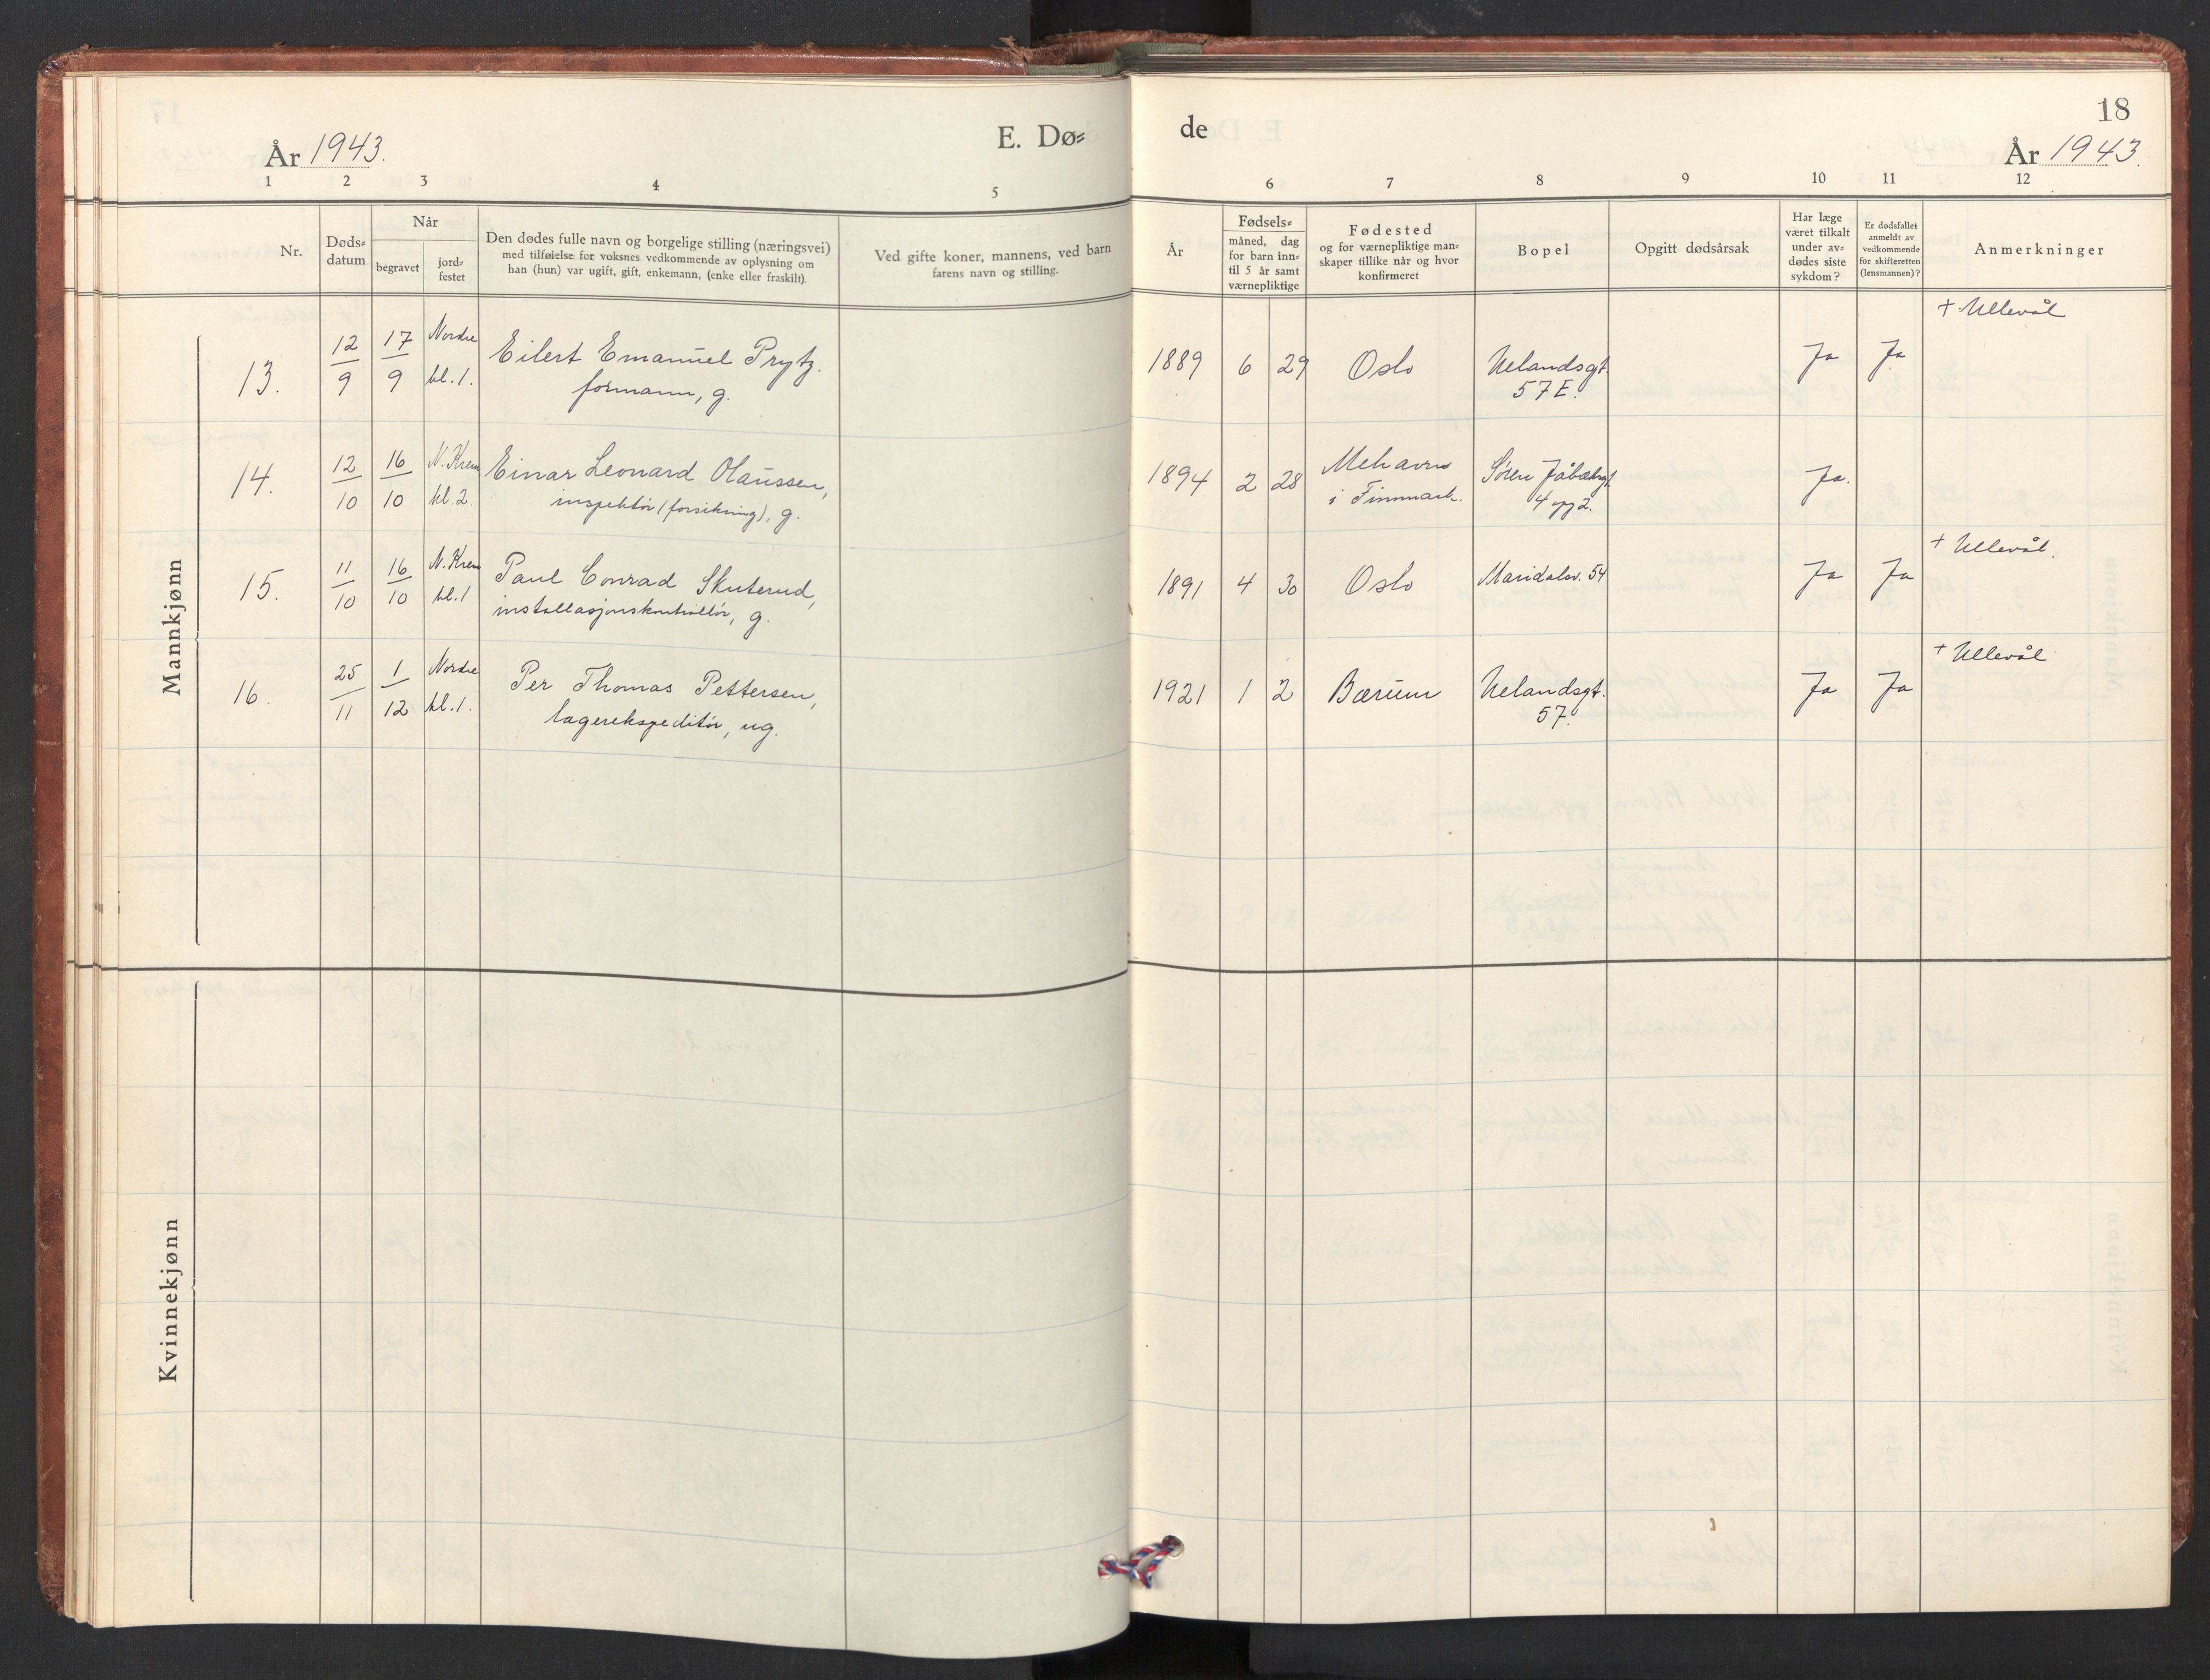 18
År 1943.
E. Dø=
de
År 1943.
1 2 3 4 5
6 7 8 9 10 11 12
Nr.
Døds=
datum
Når
begravet
jord=
festet
Den dødes fulle navn og borgelige stilling (næringsvei)
med tilføielse for voksnes vedkommende av oplysning om
han (hun) var ugift, gift, enkemann, (enke eller fraskilt).
Ved gifte koner, mannens, ved barn
farens navn og stilling.
År
Fødsels=
måned, dag
for barn inn=
til 5 år samt
værnepliktige
Fødested
og for værnepliktige man=
skaper tillike når og hvor
konfirmeret
Bopel
Opgitt dødsårsak
Har læge
været tilkalt
under av=
dødes siste
sykdom?
Er dødsfallet
anmeldt av
vedkommende
for skifteretten
(lensmannen)?
Anmerkninger
Mannkjønn
+ Ullevål
13. 12/9 17/9 Nordre kl. 1. Eilert Emanuel Prytz. 1889 6 29 Oslo Uelandsgt. Ja Ja
formann, g. 57 E.
14. 12/10 16/10 N. Krem kl. 2. Einar Leonard Olaussen, 1894 2 28 Mehavn Søren Jåbæksgt. Ja.
inspektør (forsikring), g. i Finnmark. 4 opg 2.
+ Ullevål.
15. 11/10 16/10 N. Krem kl. 1 Paul Conrad Skuterud, 1891 4 30 Oslo Maridalsv. 54 Ja Ja
installasjonskontrollør, g.
+ Ullevål
16. 25/11 1/12 Nordre kl. 1. Per Thomas Pettersen, 1921 1 2 Bærum Uelandsgt. Ja Ja
lagerekspeditør, ug. 57.
Kvinnekjønn